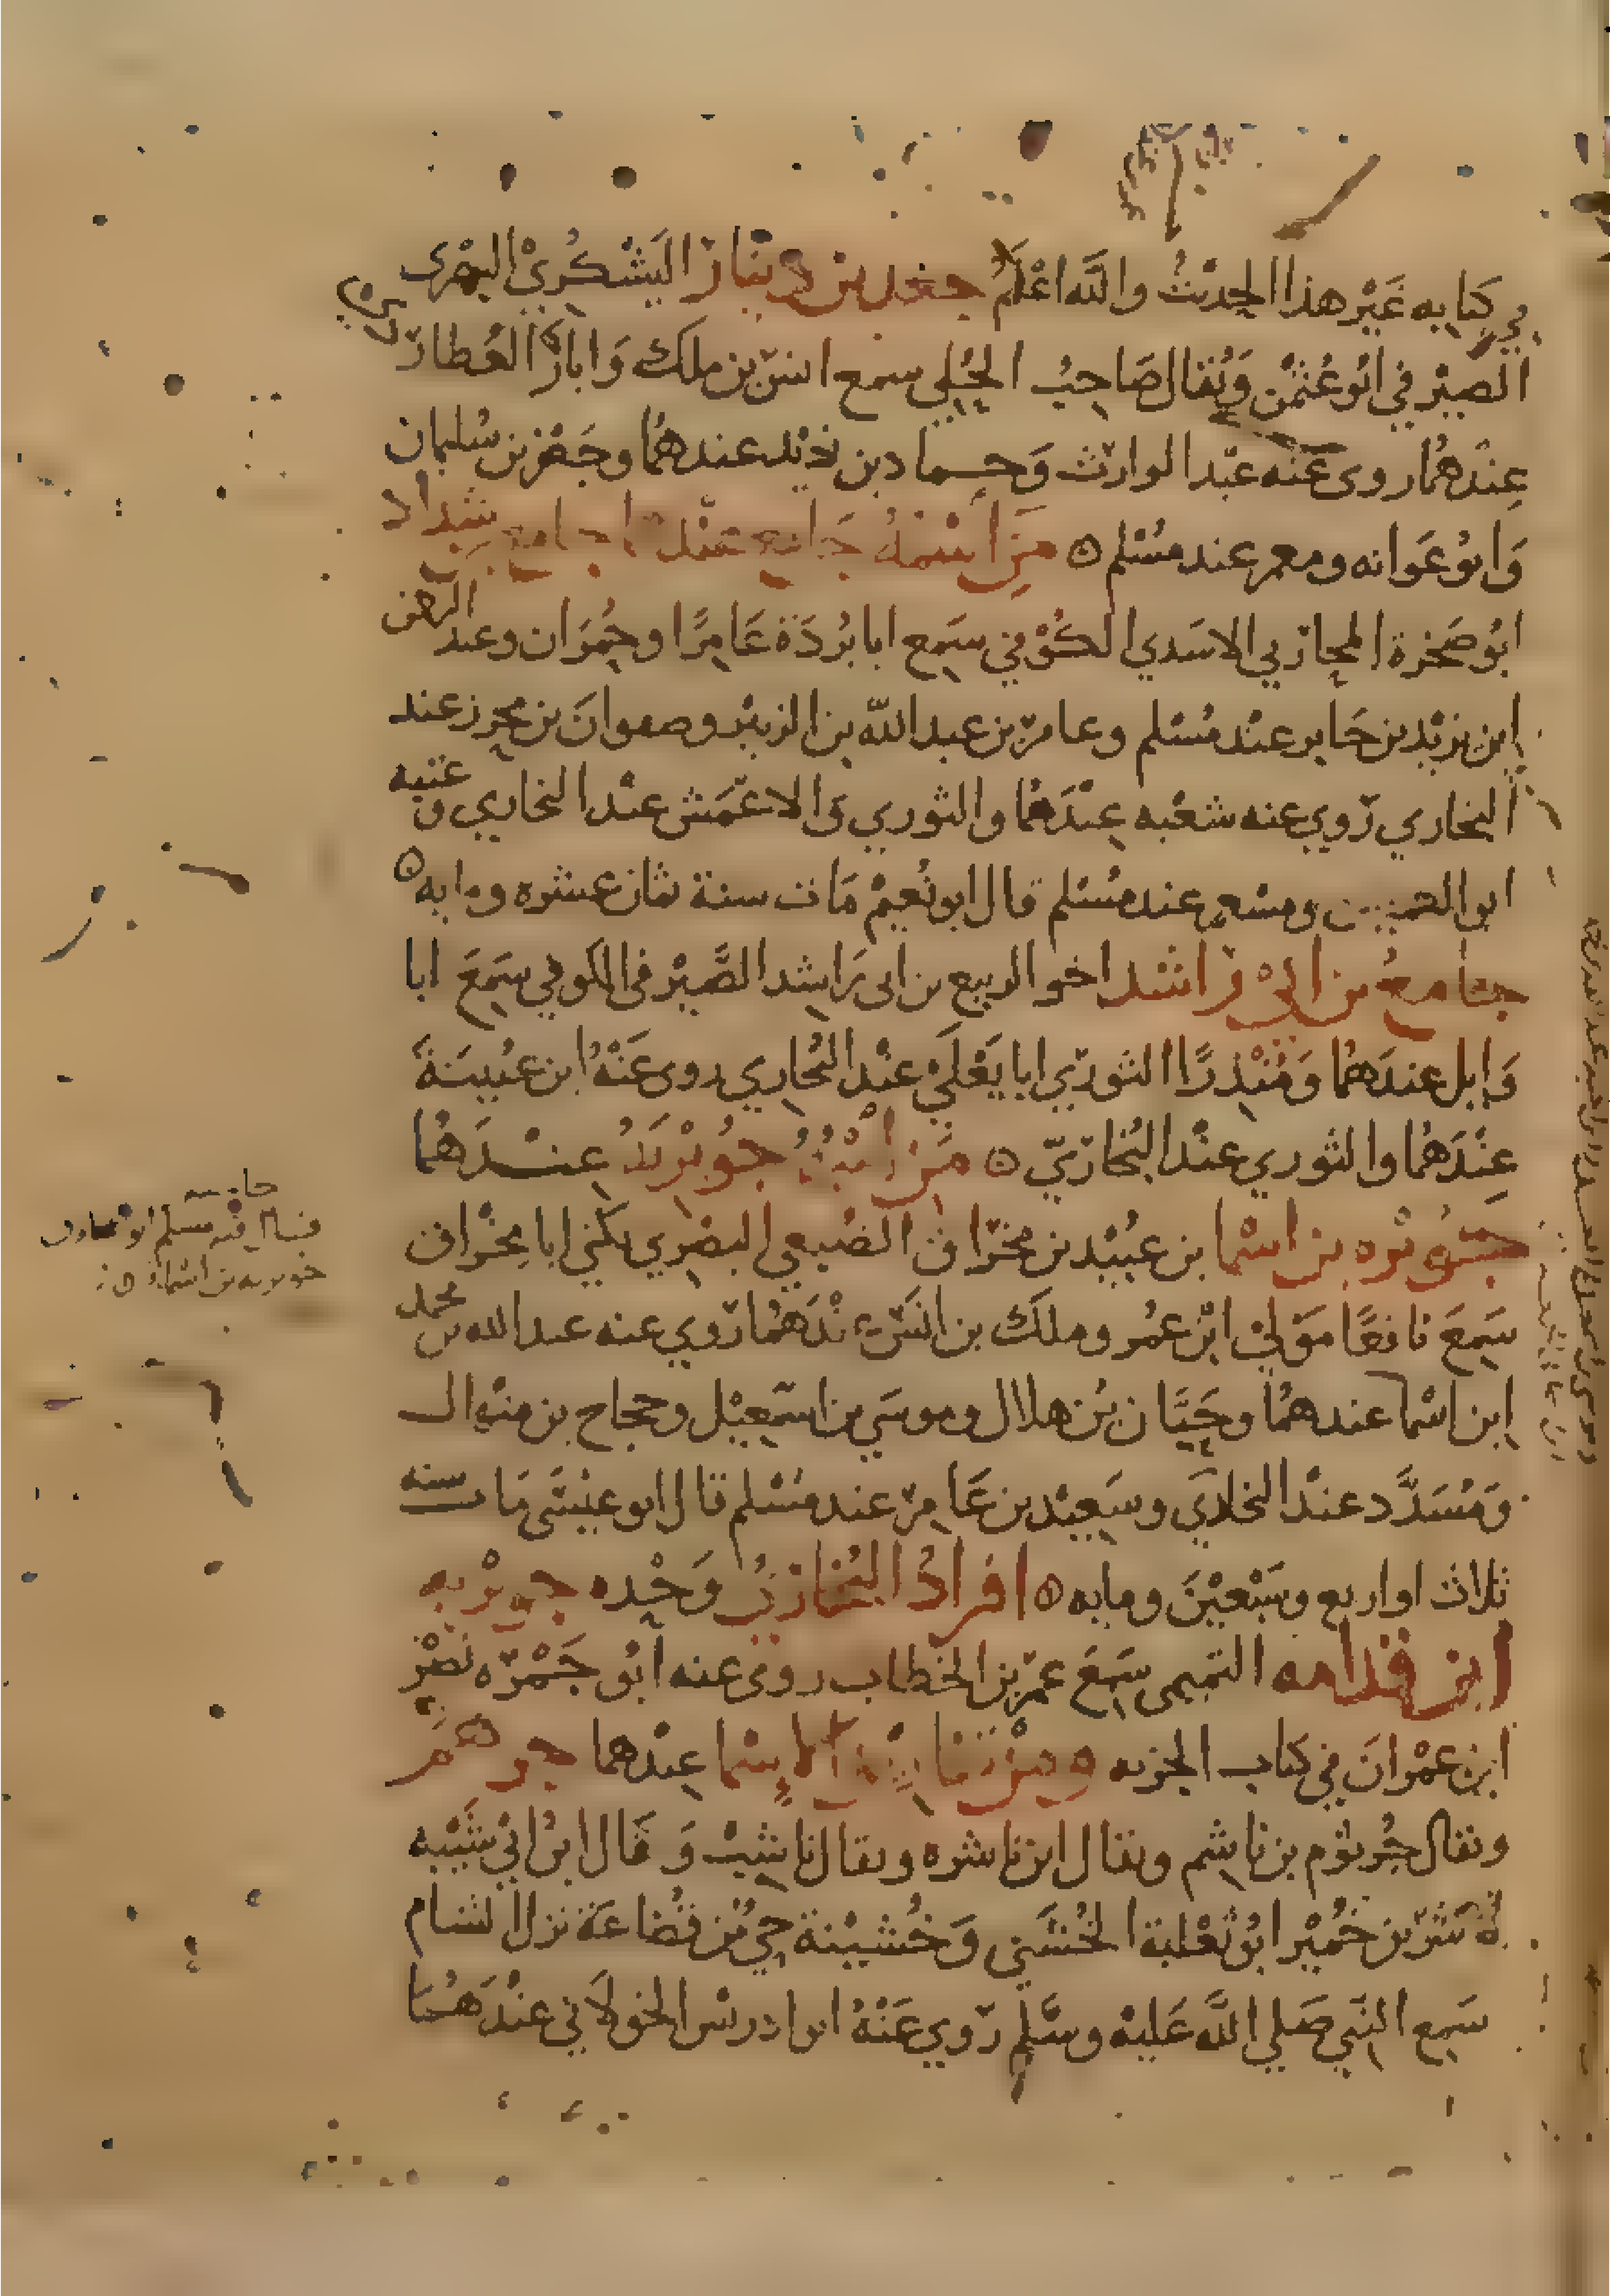 في كتابه غير هذا الحديث والله اعلم جعد بن دينار اليشكري البصري
الصيرفي ابو عثمن ويقال صاحب الحلي سمع انس بن ملك وابا رجا العطاردي
عندهما روى عنه عبد الوارث وحماد بن زيد عندهما وجعفر بن سليمان
وابو عوانه ومعمر عند مسلم ه من اسمه جامع عندهما جامع بن شداد
ابو صخرة المحاربي الاسدي الكوفي سمع ابا بردة عامرا وحمران وعبد الرحمن
ابن يزيد بن جابر عند مسلم وعامر بن عبد الله بن الزبير وصفوان بن محرز عند
البخاري روي عنه شعبه عندهما والثوري والاعمش عند البخاري و عتبه
ابو العميس ومسعر عند مسلم قال ابو نعيم مات سنة ثمان عشره ومايه ه
جامع بن ابي راشد اخو الربيع بن ابي راشد الصيرفي الكوفي سمع ابا
وايل عندهما ومنذرا الثوري ابا يعلي عند البخاري روى عنه ابن عيينة
عندهما والثوري عند البخاري ه من اسمه جويرية عندهما
جويره بن اسما بن عبيد بن مخراق الضبعي البصري يكني ابا مخراق
سمع نافعا مولي ابن عمر وملك بن انس عندهما روي عنه عبد الله بن محمد
ابن اسما عندهما وحبان بن هلال وموسي بن اسمعيل وحجاج بن منهال
ومسدد عند البخاري وسعيد بن عامر عند مسلم قال ابو عيسى مات سنه
ثلاث او اربع وسبعين ومايه ه افراد البخاري وحده جويريه
ابن قدامه التميمي سمع عمر بن الخطاب روى عنه ابو جمره نصر
ابن عمران في كتاب الجزيه ه ومن الاسما عندهما جرهم
ويقال جرثوم بن ناشم ويقال ابن ناشره ويقال ناشب وقال ابن ابي شيبه
بن حمير ابو ثعلبة الخشني وخشينة حي من قضاعة نزل الشام
سمع النبي صلي الله عليه وسلم روي عنه ابو ادريس الخولاني عندهما
حاشيه
مسلم ابو
جويريه بن اسما